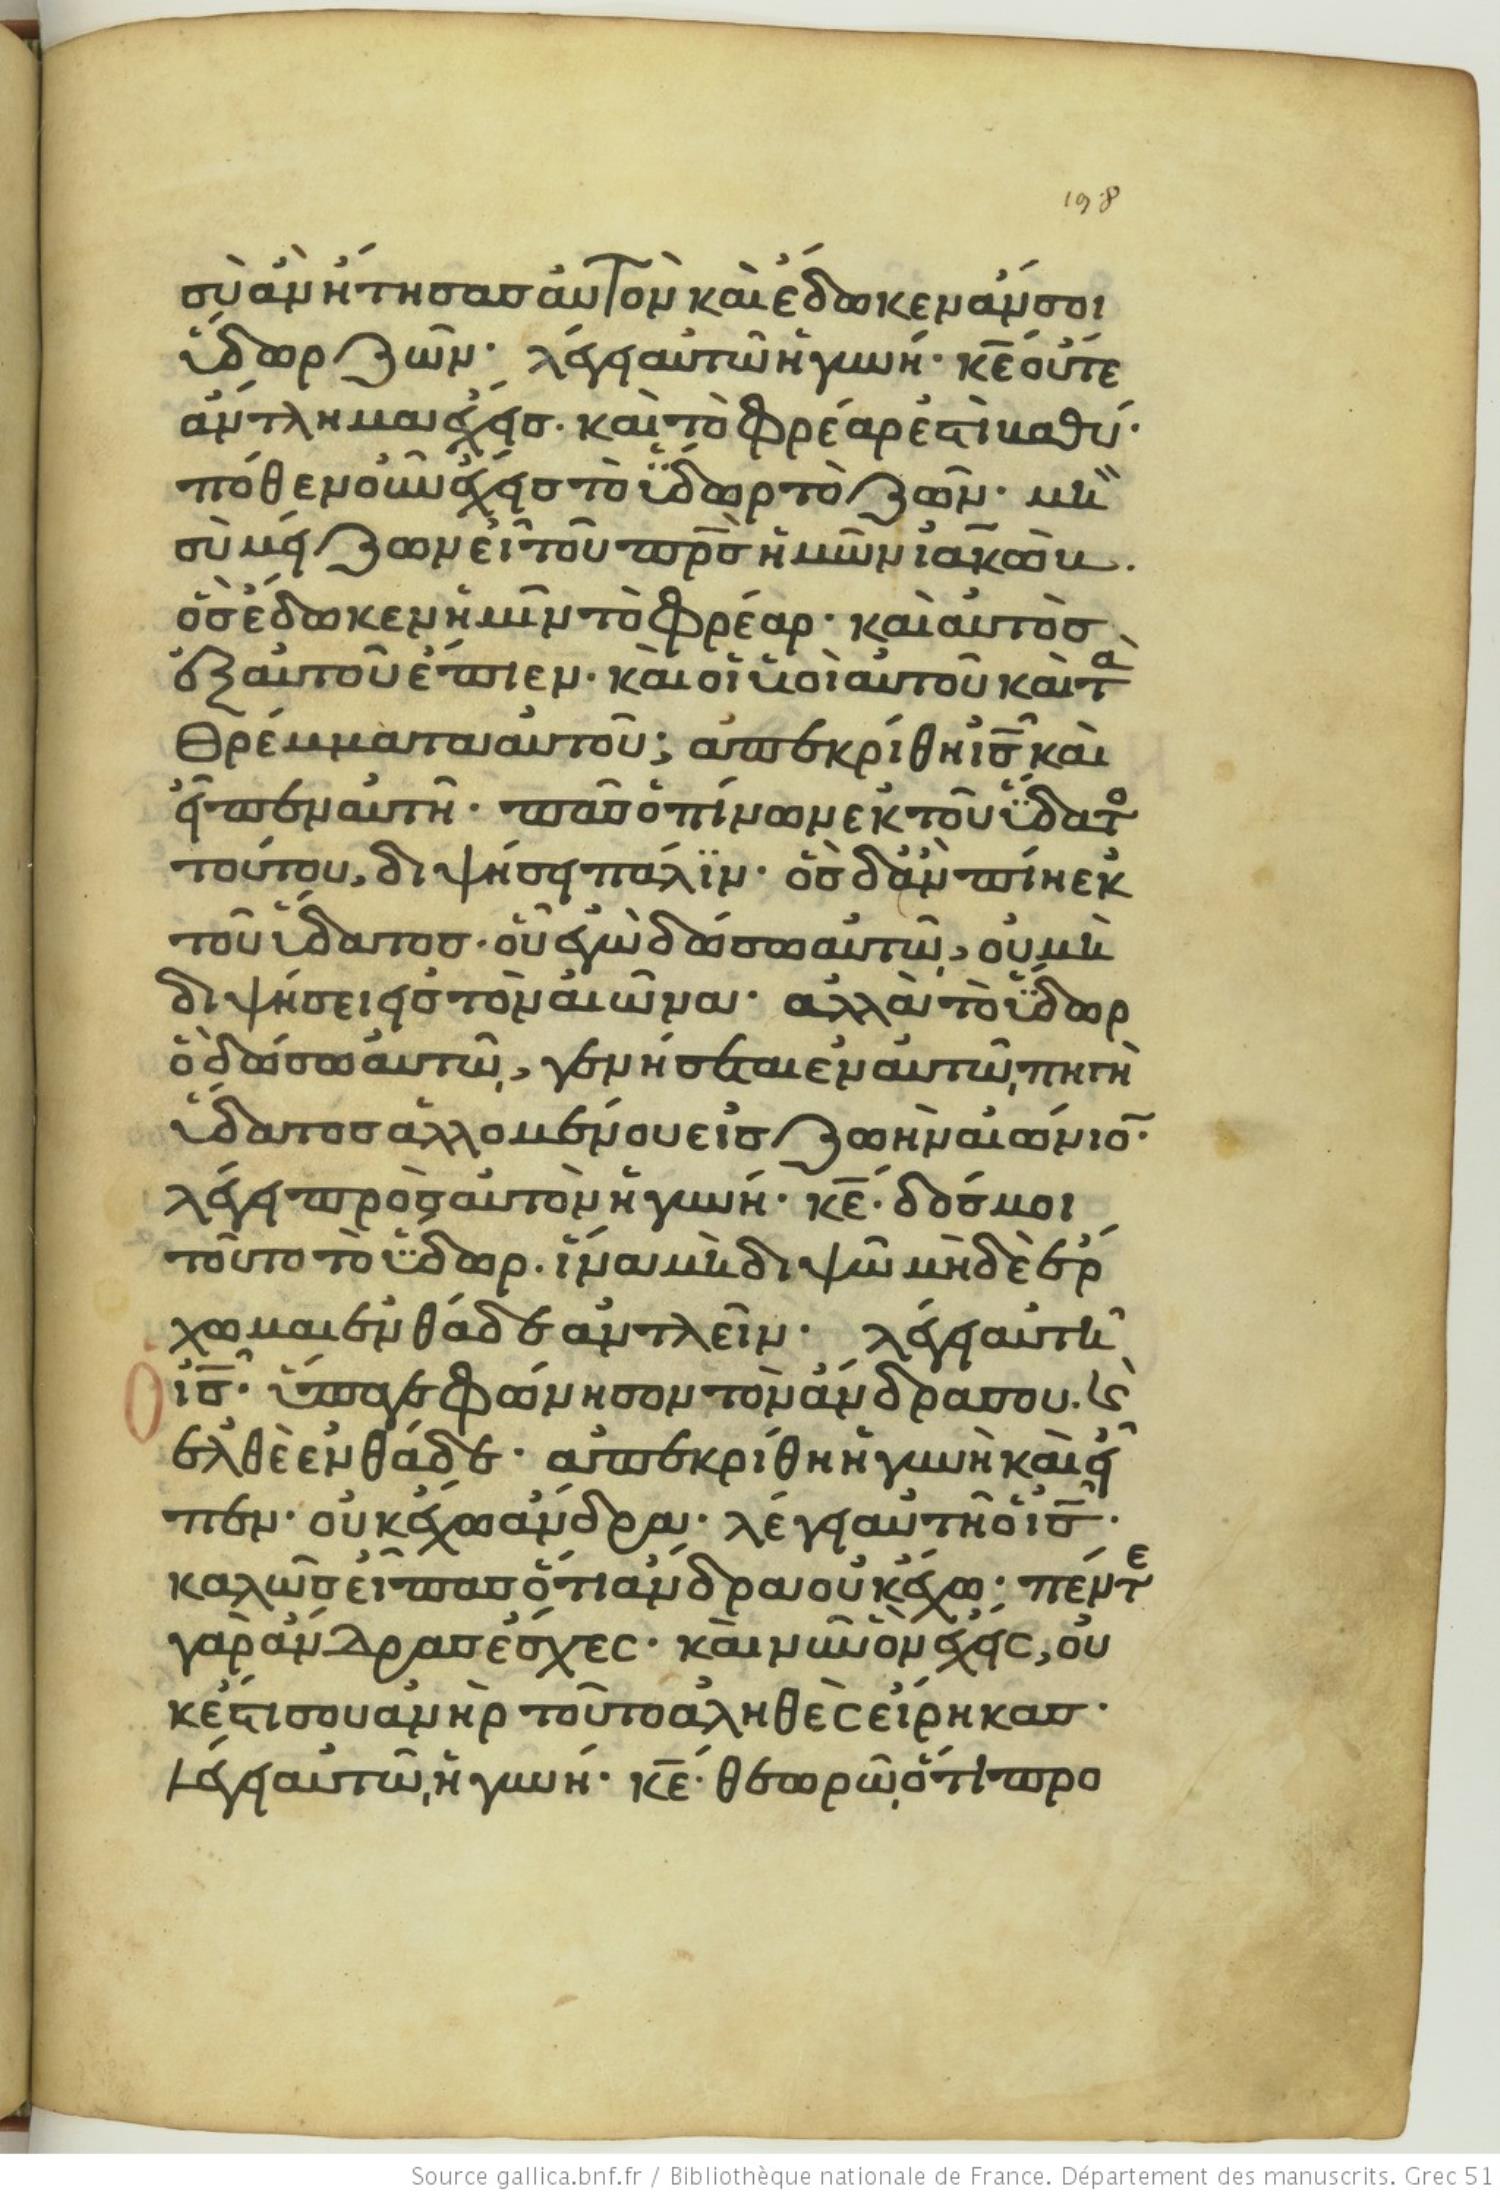 198
σὺ ἂν ἤτησας αὐτὸν καὶ ἔδωκεν ἄν σοι
ὕδωρ ζῶν· λέγει αὐτῶ ἡ γυνή· κ̅ε̅ οὔτε
ἄντλημα ἔχεις· καὶ τὸ φρέαρ ἐστὶ βαθύ·
πόθεν οὖν ἔχεις τὸ ὕδωρ τὸ ζῶν· μὴ
σὺ μείζων εἶ τοῦ π̅ρ̅ς̅ ἡμῶν ἰακώβ·
ὃς ἔδωκεν ἡμῖν τὸ φρέαρ· καὶ αὐτὸς
ἐξ αὐτοῦ ἔπιεν· καὶ οἱ υἱοὶ αὐτοῦ καὶ τὰ
θρέμματα αὐτοῦ; ἀπεκρίθη ι̅ς̅ καὶ
εἶπεν αὐτῆ· πᾶς ὁ πίνων ἐκ τοῦ ὕδατος
τούτου, διψήσει πάλϊν· ὃς δ' ἂν πίη ἐκ
τοῦ ὕδατος· οὗ ἐγὼ δώσω αὐτῶ, οὐ μὴ
διψήσει εἰς τὸν αἰῶνα· ἀλλὰ τὸ ὕδωρ
ὃ δώσω αὐτῶ, γενήσεται ἐν αὐτῶ πηγὴ
ὕδατος ἁλλομένου εἰς ζωὴν αἰώνιον·
λέγει πρὸς αὐτὸν ἡ γυνή· κ̅ε̅· δός μοι
τοῦτο τὸ ὕδωρ· ἵνα μὴ διψῶ μηδὲ ἔρ
χωμαι ἐνθάδε ἀντλεῖν· λέγει αὐτῆ
ὁ ι̅ς̅· ὕπαγε φώνησον τὸν ἄνδρα σου· καὶ
ἐλθὲ ἐνθάδε· ἀπεκρίθη ἡ γυνὴ καὶ εἶ
πεν· οὐκ ἔχω ἄνδρα· λέγει αὐτῆ ὁ ι̅ς̅·
καλῶς εἶπας ὅτι ἄνδρα οὐκ ἔχω· πέντε
γὰρ ἄνδρας ἔσχες· καὶ νῦν ὃν ἔχεις, οὐ
κ ἔστι σου ἀνὴρ τοῦτο ἀληθὲς εἴρηκας·
λέγει αὐτῶ ἡ γυνή· κ̅ε̅· θεωρῶ ὅτι προ
Source gallica.bnf.fr / Bibliothèque nationale de France. Département des manuscrits. Grec 51